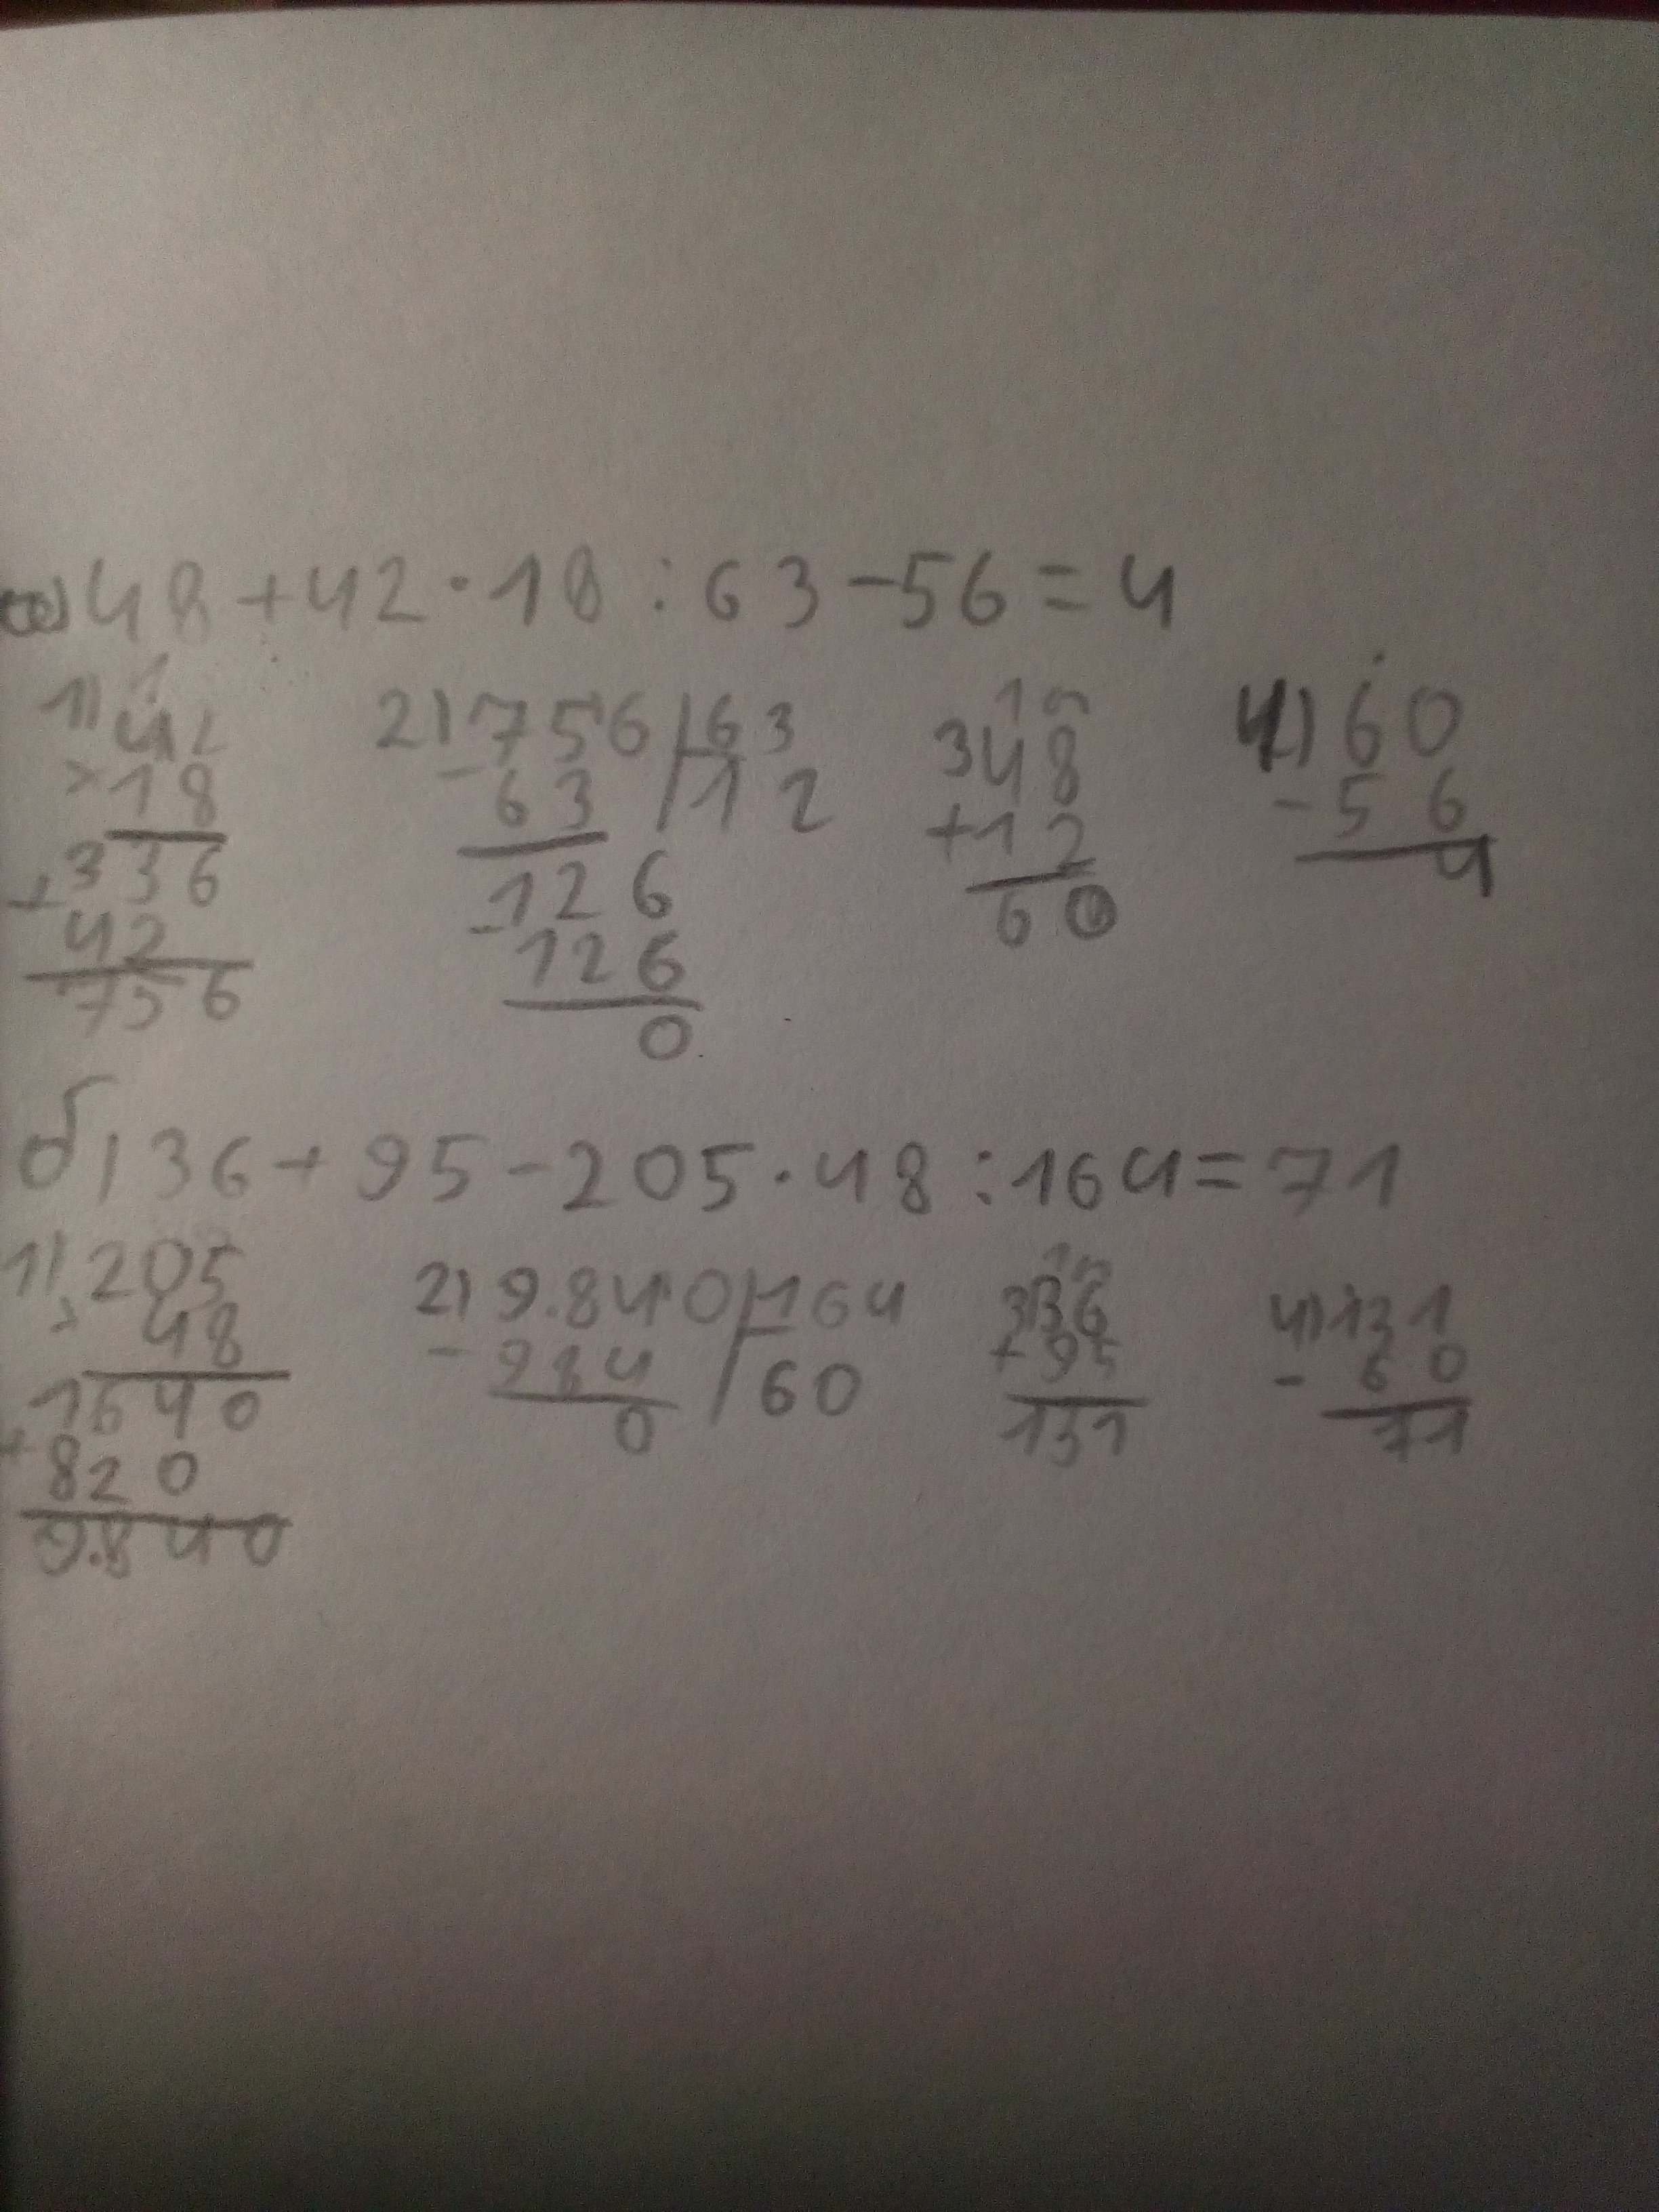 а) 48 + 42 · 18 : 63 - 56 = 4
1) 42 2) 756 | 63 3 48 4) 60
× 18 - 63 | 12 + 12 - 56
+ 336 126 60 4
42 - 126
756 0
б) 36 + 95 - 205 · 48 : 164 = 71
1) 205 2) 9.840 | 164 3) 36 4) 131
× 48 - 984 | 60 + 95 - 60
+ 1640 0 131 71
820
9.840